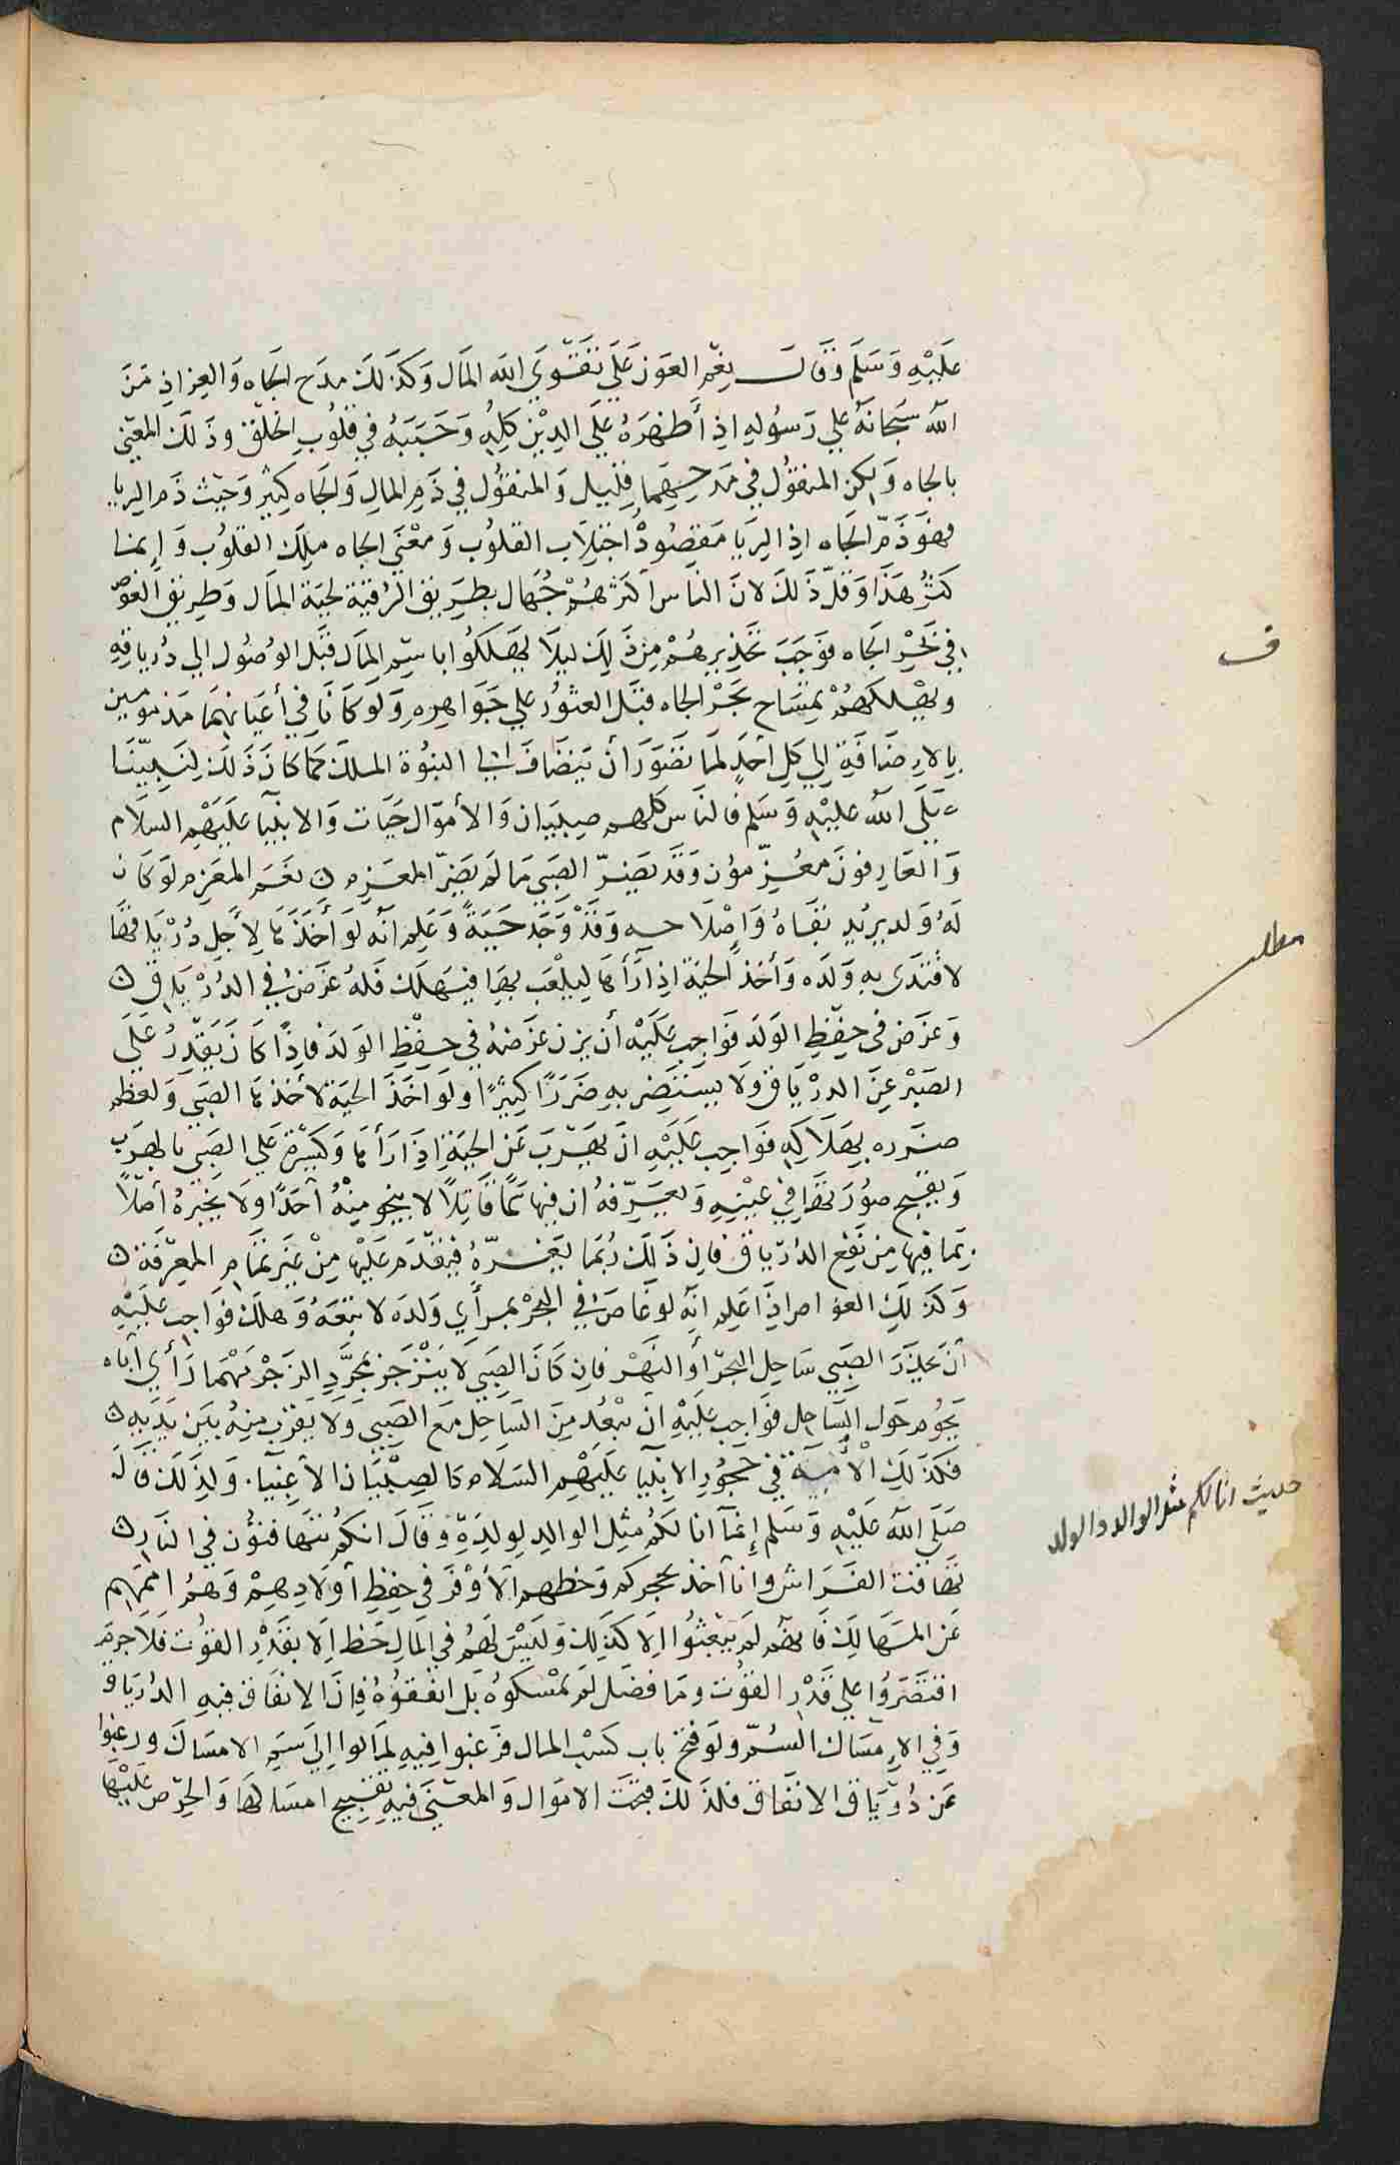 عليه وسلم وقال نعم العون علي تقوي الله المال وكذلك مدح الجاه والعز اذ من
الله سبحانه علي رسوله اذ أظهره علي الدين كله وحببه في قلوب الخلق وذلك المعني
بالجاه ولكن المنقول في مدحهما قليل والمنقول في ذم المال والجاه كثير وحيث ذم الريا
فهو ذم الجاه اذ الريا مقصود اجتلاب القلوب ومعني الجاه ملك القلوب وإنما
كثر هذا وقل ذلك لان الناس اكثرهم جهال بطريق الرقية لحية المال وطريق الغوص
في بحر الجاه فوجب تحذيرهم من ذلك ليلا يهلكوا بسم المال قبل الوصول الي درياقه
ويهلكهم تمساح بحر الجاه قبل العثور علي جواهره ولو كانا في أعيانهما مذمومين
بالإضافة إلي كل أحد لما تصور أن تنضاف الي النبوة الملك كما كان ذلك لنبينا
صلي الله عليه وسلم فالناس كلهم صبيان والأموال حيات والانبيا عليهم السلام
والعارفون معزمون وقد يضر الصبي ما لم يضر المعزم نعم المعزم لو كان
له ولد يريد بقاه وإصلاحه وقد وجد حية وعلم انه لو أخذها لأجل درياقها
لاقتدى به ولده وأخذ الحية اذا رأها ليلعب بها فيهلك فله غرض في الدرياق
وغرض في حفظ الولد فواجب عليه أن يزن غرضه في حفظ الولد فاذا كان يقدر علي
الصبر عن الدرياق ولا يستضر به ضررا كثيرا ولو اخذ الحية لأخذها الصبي ولعظم
ضرره بهلاكه فواجب عليه ان يهرب عن الحية اذا رأها وكسرة علي الصبي بالهرب
ويقبح صورتها في عينيه ويعرفه ان فيها سما قاتلا لا ينجو منه أحدا ولا يخبره أصلا
بما فيها من نفع الدرياق فان ذلك ربما يغره فيقدم عليها من غير تمام المعرفة
وكذلك الغواص اذا علم انه لو غاص في البحر بمرأي ولده لاتبعه وهلك فواجب عليه
أن يحذر الصبي ساحل البحر أو النهر فان كان الصبي لا ينزجز بمجرد الزجر مهما رأي أباه
يحوم حول الساحل فواجب عليه ان يبعد من الساحل مع الصبي ولا يقرب منه بين يديه
فكذلك الأمة في حجور الانبيا عليهم السلام كالصبيان الأغنيا. ولذلك قال
صلي الله عليه وسلم إنما انا لكم مثل الوالد لولده وقال انكم تتهافتون في النار
تهافت الفراش وانا آخذ بحجركم وحظهم الأوفر في حفظ أولادهم وهم اممهم
عن المهالك فانهم لم يبعثوا الا كذلك وليس لهم في المال حظ الا بقدر القوت فلا جرم
اقتصروا علي قدر القوت وما فضل لم يمسكوه بل انفقوه فان الانفاق فيه الدرياق
وفي الإمساك السم ولو فتح باب كسب المال فرغبوا فيه لمالوا إلي سم الامساك ورغبوا
عن درياق الانفاق فلذلك قبحت الاموال والمعني فيه تقبيح امساكها والحرص عليها
ف
مطلب
حديث انا لكم مثل الوالد والولد